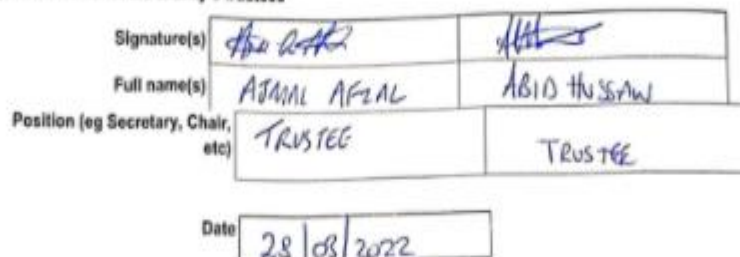 Signature(s)
Full name(s) AJMAL AFZAL ABID HUSSAIN
Position (eg Secretary, Chair, etc) TRUSTEE TRUSTEE
Date 28/03/2022